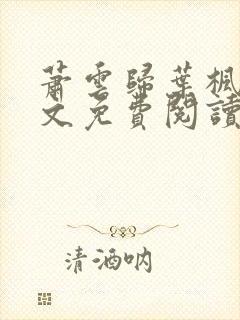 蕭雲歸葉楓
文免費閱讀
清酒吶